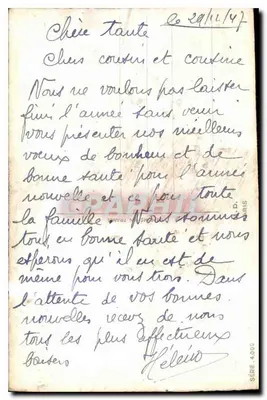 le 29/12/47
Chère tante
Chers cousin et cousine
Nous ne voulons pas laisser
finir l'année sans venir
vous présenter nos meilleurs
voeux de bonheur et de
bonne santé pour l'année
nouvelle et ce pour toute
la famille. Nous sommes
tous en bonne santé et nous
esperons qu'il en est de
même pour vous trois. Dans
l'attente de vos bonnes
nouvelles recevez de nous
tous les plus affectueux
baisers
D.
PARIS
SÉRIE 4.099